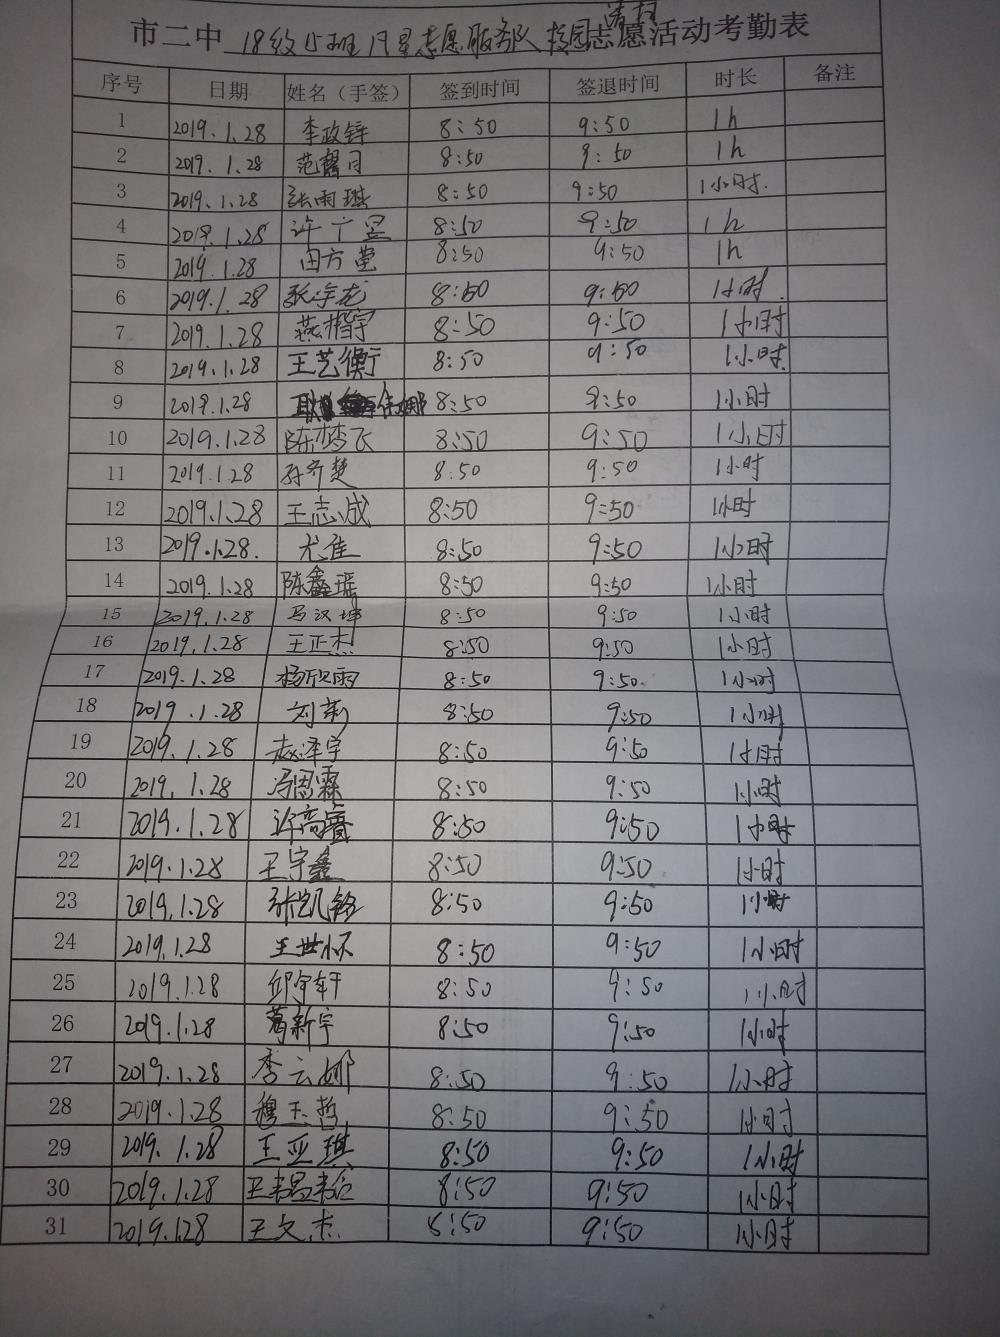 清扫
市二中 18级15班日星志愿服务队校园志愿活动考勤表
序号 日期 姓名（手签） 签到时间 签退时间 时长 备注
1 2019.1.28 李政锌 8:50 9:50 1h
2 2019.1.28 范馨月 8:50 9:50 1h
3 2019.1.28 张雨琪 8:50 9:50 1小时.
4 2019.1.28 许 昱 8:50 9:50 1h
5 2019.1.28 田方莹 8:50 9:50 1h
6 2019.1.28 张淳龙 8:50 9:50 1小时.
7 2019.1.28 燕楷宇 8:50 9:50 1小时
8 2019.1.28 王艺衡 8:50 9:50 1小时
9 2019.1.28 8:50 9:50 1小时
10 2019.1.28 陈梦飞 8:50 9:50 1小时
11 2019.1.28 孙齐楚 8:50 9:50 1小时
12 2019.1.28 王志成 8:50 9:50 1小时
13 2019.1.28. 尤佳 8:50 9:50 1小时
14 2019.1.28 陈鑫瑶 8:50 9:50 1小时
15 2019.1.28 马汉坤 8:50 9:50 1小时
16 2019.1.28 王正杰 8:50 9:50 1小时
17 2019.1.28 杨欣雨 8:50 9:50. 1小时
18 2019.1.28 刘新 8:50 9:50 1小时
19 2019.1.28 赵泽宇 8:50 9:50 1小时
20 2019.1.28 冯恩霖 8:50 9:50 1小时
21 2019.1.28 许高睿 8:50 9:50 1小时
22 2019.1.28 王宇鑫 8:50 9:50 1小时
23 2019.1.28 张凯铭 8:50 9:50 1小时
24 2019.1.28 王世怀 8:50 9:50 1小时
25 2019.1.28 邱宇轩 8:50 9:50 1小时
26 2019.1.28 葛新宇 8:50 9:50 1小时
27 2019.1.28 李云娜 8:50 9:50 1小时
28 2019.1.28 穆玉哲 8:50 9:50 1小时
29 2019.1.28 王亚琪 8:50 9:50 1小时
30 2019.1.28 8:50 9:50 1小时
31 2019.1.28 王文杰 8:50 9:50 1小时